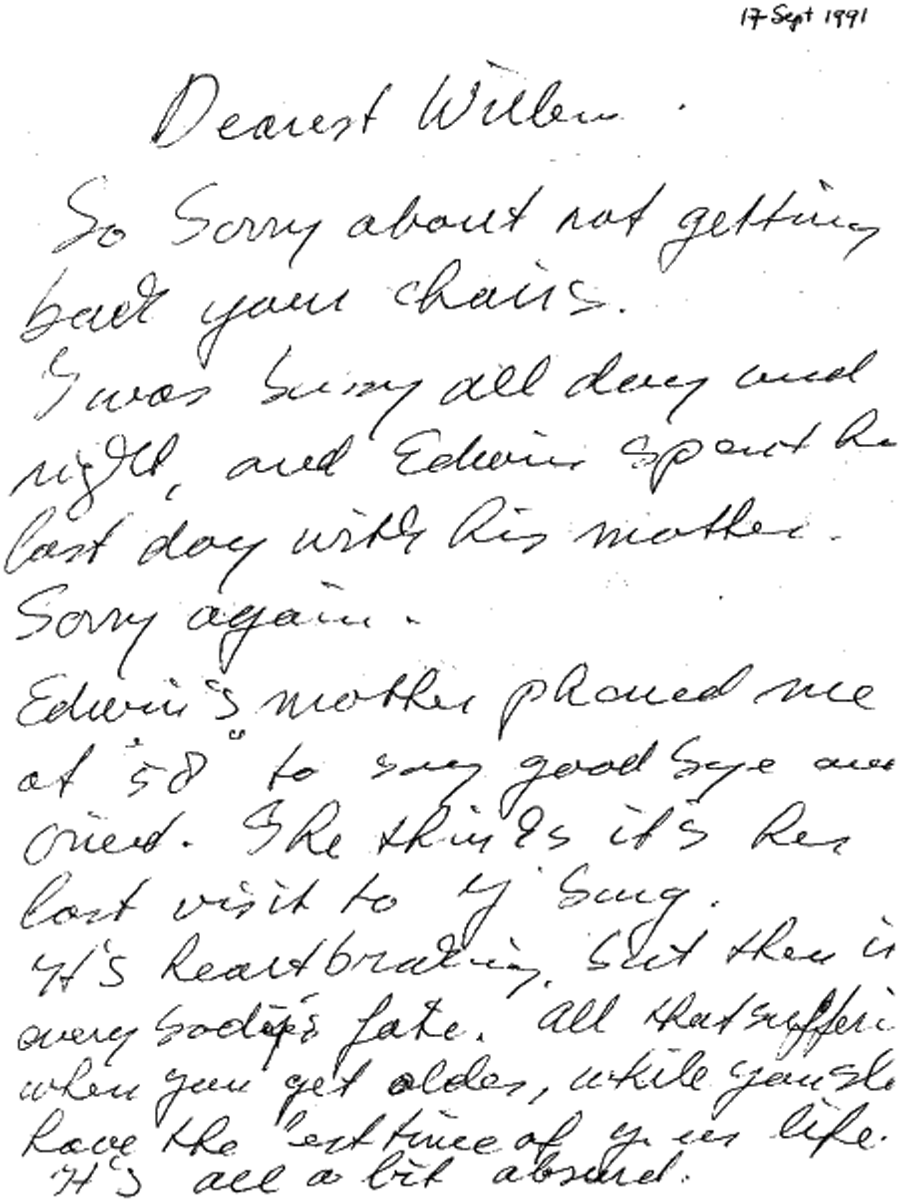 17 Sept 1991
Dearest Willem
So Sorry about not getting
back your chairs.
I was busy all day and
night, and Edwin spent he
last day with his mother.
Sorry again.
Edwin's mother phoned me
at "58" to say good bye and
cried. She thinks it's her
last visit to J'burg.
It's heartbraking, but then
every body's fate. All that sufferi
when you get older, while you
have the time of life.
It's all a bit absurd.